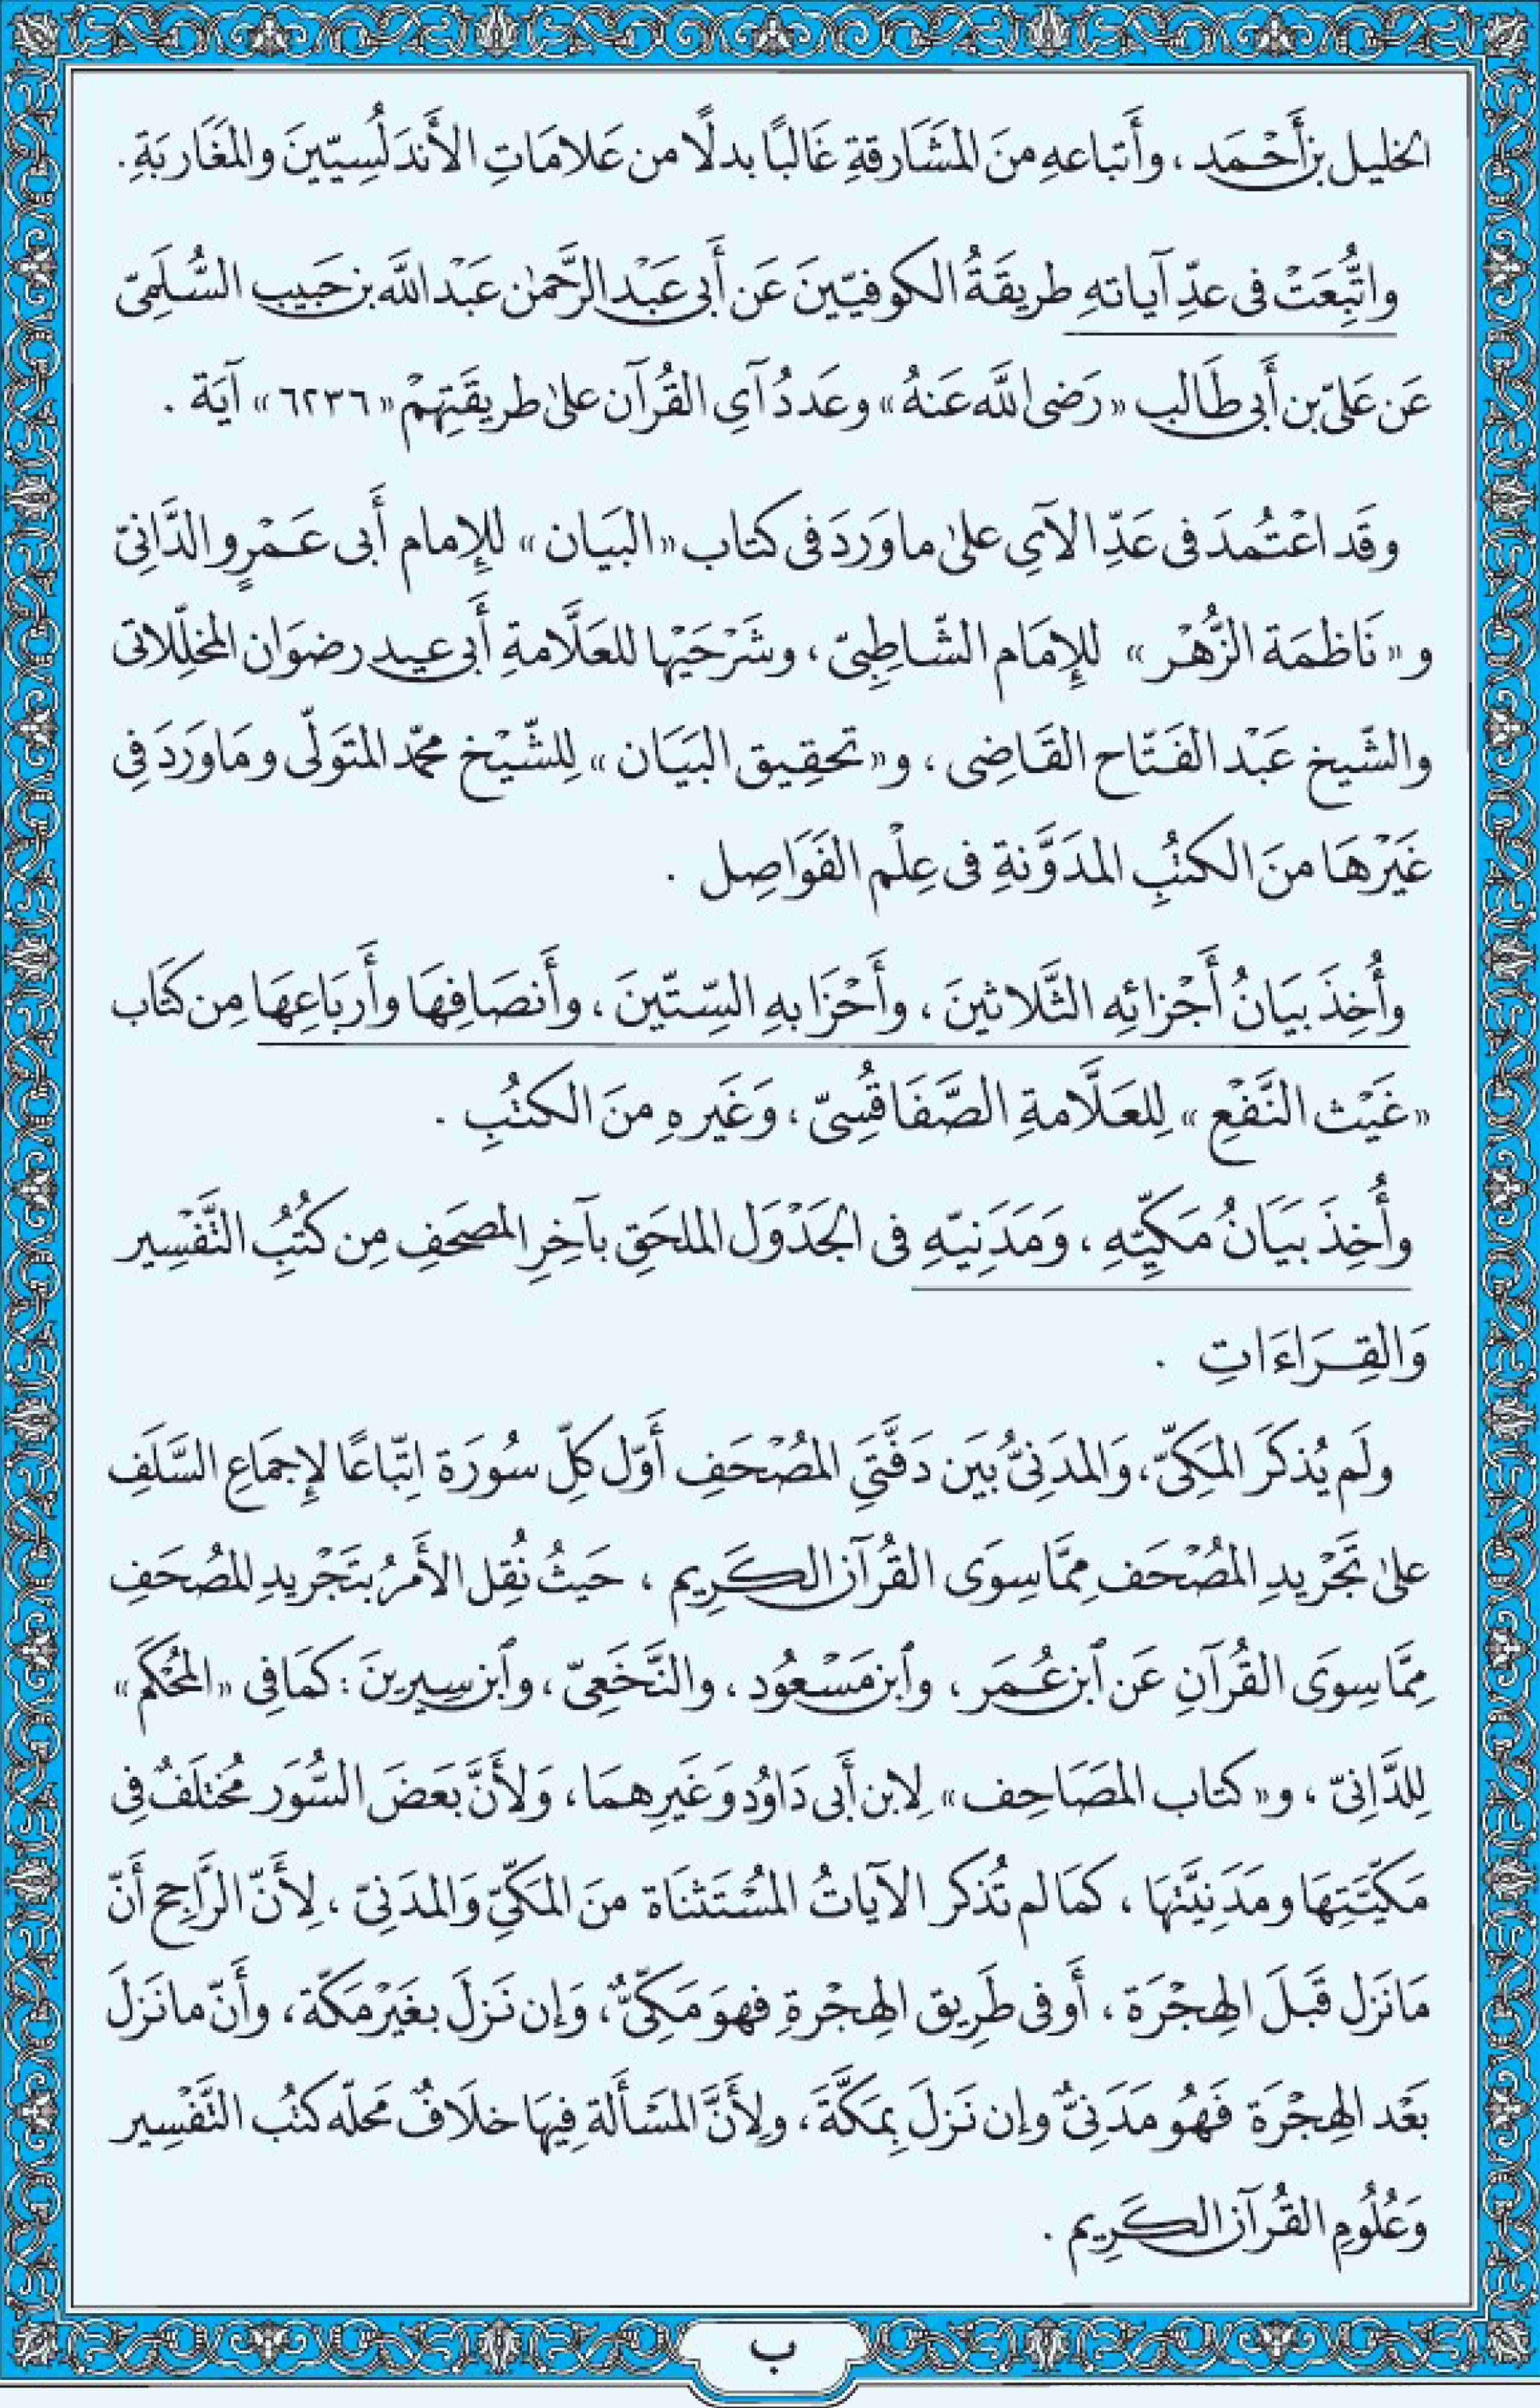 الخليل بن أَحْمَد ، وأَتباعهِ منَ المَشَارقةِ غَالبًا بدلًا من عَلامَاتِ الأَندَلُسِيّينَ والمَغَاربَةِ .
واتُّبِعَتْ فى عدِّ آياتهِ طريقَةُ الكوفيّينَ عَن أَبى عَبْد الرَّحمٰن عَبْد اللَّه بن حَبيب السُّلَمِىّ
عَن عَلىّ بن أَبى طَالب « رَضى اللَّه عَنهُ » وعَددُ آىِ القُرآن علىٰ طريقَتِهِمْ « ٦٢٣٦ » آيَة .
وقَد اعْتُمدَ فى عَدِّ الآىِ علىٰ ما وَرَدَ فى كتاب « البَيَان » للإِمام أَبى عَمْرٍو الدَّانِىّ
و « نَاظمَة الزُّهْر » للإِمَام الشّاطِبِىّ ، وشَرْحَيْها للعَلَّامةِ أَبى عيد رضوَان المخلِّلاتى
والشّيخ عَبْد الفَتّاح القَاضِى ، و « تحقِيق البَيَان » لِلشّيْخ محمّد المتَوَلّى ومَا وَرَدَ فِى
غَيْرْهَا منَ الكتُبِ المدَوَّنةِ فى عِلْم الفَوَاصِل .
وأُخِذَ بيَانُ أَجْزائِه الثَّلاثينَ ، وأَحْزَابهِ السِّتّينَ ، وأَنصَافِهَا وأَربَاعِهَا مِن كتَاب
« غَيْث النَّفْعِ » لِلعَلَّامةِ الصَّفَاقُسِىّ ، وَغَيَرهِ منَ الكتُبِ .
وأُخِذَ بيَانُ مَكيِّهِ ، وَمَدَنِيّهِ فى الجَدْوَل الملحَقِ بآخِرِ المصحَفِ مِن كتُبِ التَّفْسِير
وَالقِرَاءَاتِ .
ولَم يُذكَرَ المَكىّ ، وَالمدَنِىُّ بيَن دَفَّتَىِ المُصْحَفِ أَوّل كلِّ سُورَة اِتّباعًا لإِجمَاعِ السَّلَفِ
علىٰ تَجْريدِ المُصْحَفِ ممَّا سِوَى القُرآن الكَرِيم ، حَيثُ نُقِل الأَمرُ بتَجْريدِ المصُحَفِ
ممَّا سِوَى القُرآنِ عَن ٱبن عُمَر ، وٱبن مَسْعُود ، والنَّخَعِىّ ، وٱبن سِيرِينَ : كمَا فِى « المُحْكَم »
لِلدَّانِىّ ، و « كتاب المصَاحِف » لِابن أَبى دَاوُد وَغَيَرِهمَا ، وَلأَنَّ بَعَضَ السُّوَر مُختلَفٌ فِى
مَكيَّتِهَا ومَدَنِيَّتهَا ، كمَا لم تُذكر الآيَاتُ المُسْتَثنَاة منَ المَكىِّ وَالمدَنِىّ ، لِأَنّ الرَّاجح أَنّ
مَا نَزل قَبلَ الهِجْرَة ، أَو فى طَرِيق الهِجْرةِ فهوَ مَكىٌّ ، وَإِن نَزلَ بغَيَرْ مَكّة ، وأَنّ ما نَزلَ
بَعْد الهِجْرَة فَهُو مَدَنِىٌّ وإِن نَزلَ بمَكَّةَ ، ولِأَنَّ المَسْأَلة فِيهَا خلَافٌ مَحلّه كتُب التَّفْسِير
وَعُلُومِ القُرآن الكَرِيم .
ب